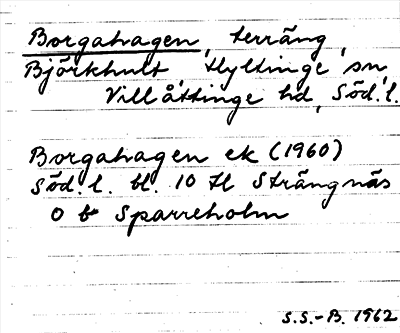 Borgahagen, terräng,
Björkhult, Hyltinge sn,
Villåttinge hd, Söd. l.
Borgahagen ek (1960)
Söd. l. bl. 10 H Strängnäs
0 b Sparreholm
S.S.-B. 1962